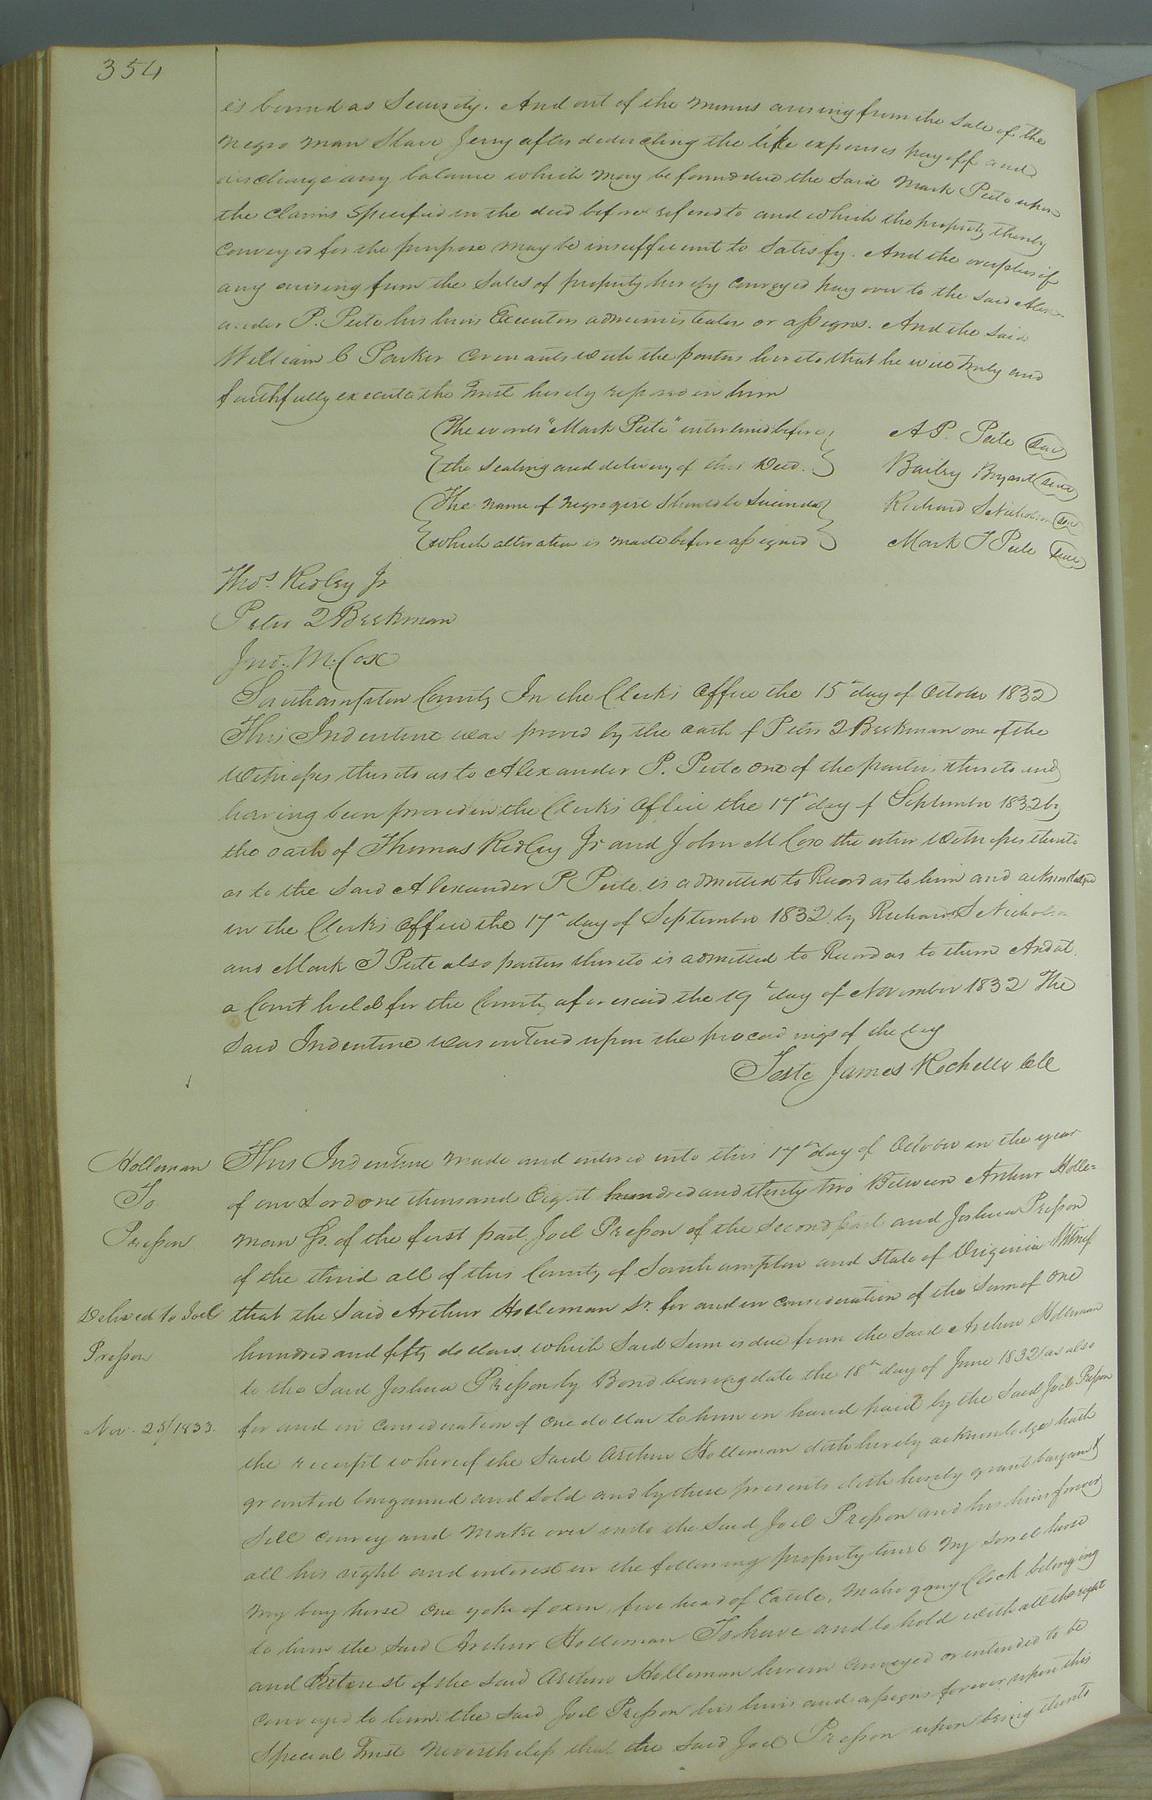 354
is bound as Security. And out of the monies arising from the Sale of the
Negro man Slave Jerry after deducting the like expenses pay off and
discharge any balance which may be found due the Said Mark Peete upon
the Claims Specified in the deed before refered to and which the property thereby
Conveyed for the purpose may be insufficient to Satisfy. And the overplus if
any arising from the Sales of property hereby Conveyed pay over to the Said Alex-
ander P. Peete his heirs Executors administrators or assigns. And the Said
William C Parker Covenants with the parties hereto that he will truly and
faithfully execute the Trust hereby reposed in him
The words "Mark Peete" interlined before
the Sealing and delivery of this Deed.
The name of Negro girl Should be Lucinda
which alteration is made before assigned
A P. Peete Seal
Bailey Bryant Seal
Richard S Nicholson Seal
Mark T Peete Seal
Thos. Ridley Jr
Peter Q Beekman
Jno. M. Cox
Southampton County In the Clerk's Office the 15th day of October 1832
This Indenture was proved by the oath of Peter Q Beekman one of the
Witnesses thereto as to Alexander P. Peete one of the parties thereto and
having been proved in the Clerks Office the 17th day of September 1832 by
the oath of Thomas Ridley Jr and John M Cox the other Witnesses thereto
as to the Said Alexander P Peete is admitted to Record as to him and acknowledged
in the Clerks office the 17th day of September 1832 by Richard S Nicholson
and Mark T Peete also parties thereto is admitted to Record as to them And at
a Court held for the County aforesaid the 19th day of November 1832 The
Said Indenture was entered upon the proceedings of the day
Teste James Rochelle Clk
Holleman
To
Presson
Delivered to Joel
Presson
Nov. 25/1833.
This Indenture made and entered into this 17th day of October in the year
of our Lord one thousand Eight hundred and thirty two Between Arthur Holle-
man Sr. of the first part Joel Presson of the Second part and Joshua Presson
of the third all of this County of Southampton and State of Virginia Witnessf
that the Said Arthur Holleman Sr. for and in consideration of the Sum of One
hundred and fifty dollars which Said Sum is due from the Said Arthur Holleman
to the Said Joshua Presson by Bond bearing date the 18th day of June 1832 as also
for and in Consideration of One dollar to him in hand paid by the Said Joel Presson
the receipt whereof the Said Arthur Holleman doth hereby acknowledge hath
granted bargained and Sold and by these presents doth hereby grant bargain &
Sell Convey and Make over unto the Said Joel Presson and his heirs forever
all his right and interest in the following property to wit My Sorrel horse
My bay horse One yoke of oxen, five head of Cattle, Mahogany Clock belonging
to him the Said Arthur Holleman To have and to hold with all the right
and Interest of the Said Arthur Holleman herein Conveyed or intended to be
Conveyed to him the Said Joel Presson his heirs and assigns forever upon this
Special Trust Nevertheless that the Said Joel Presson upon being thereto